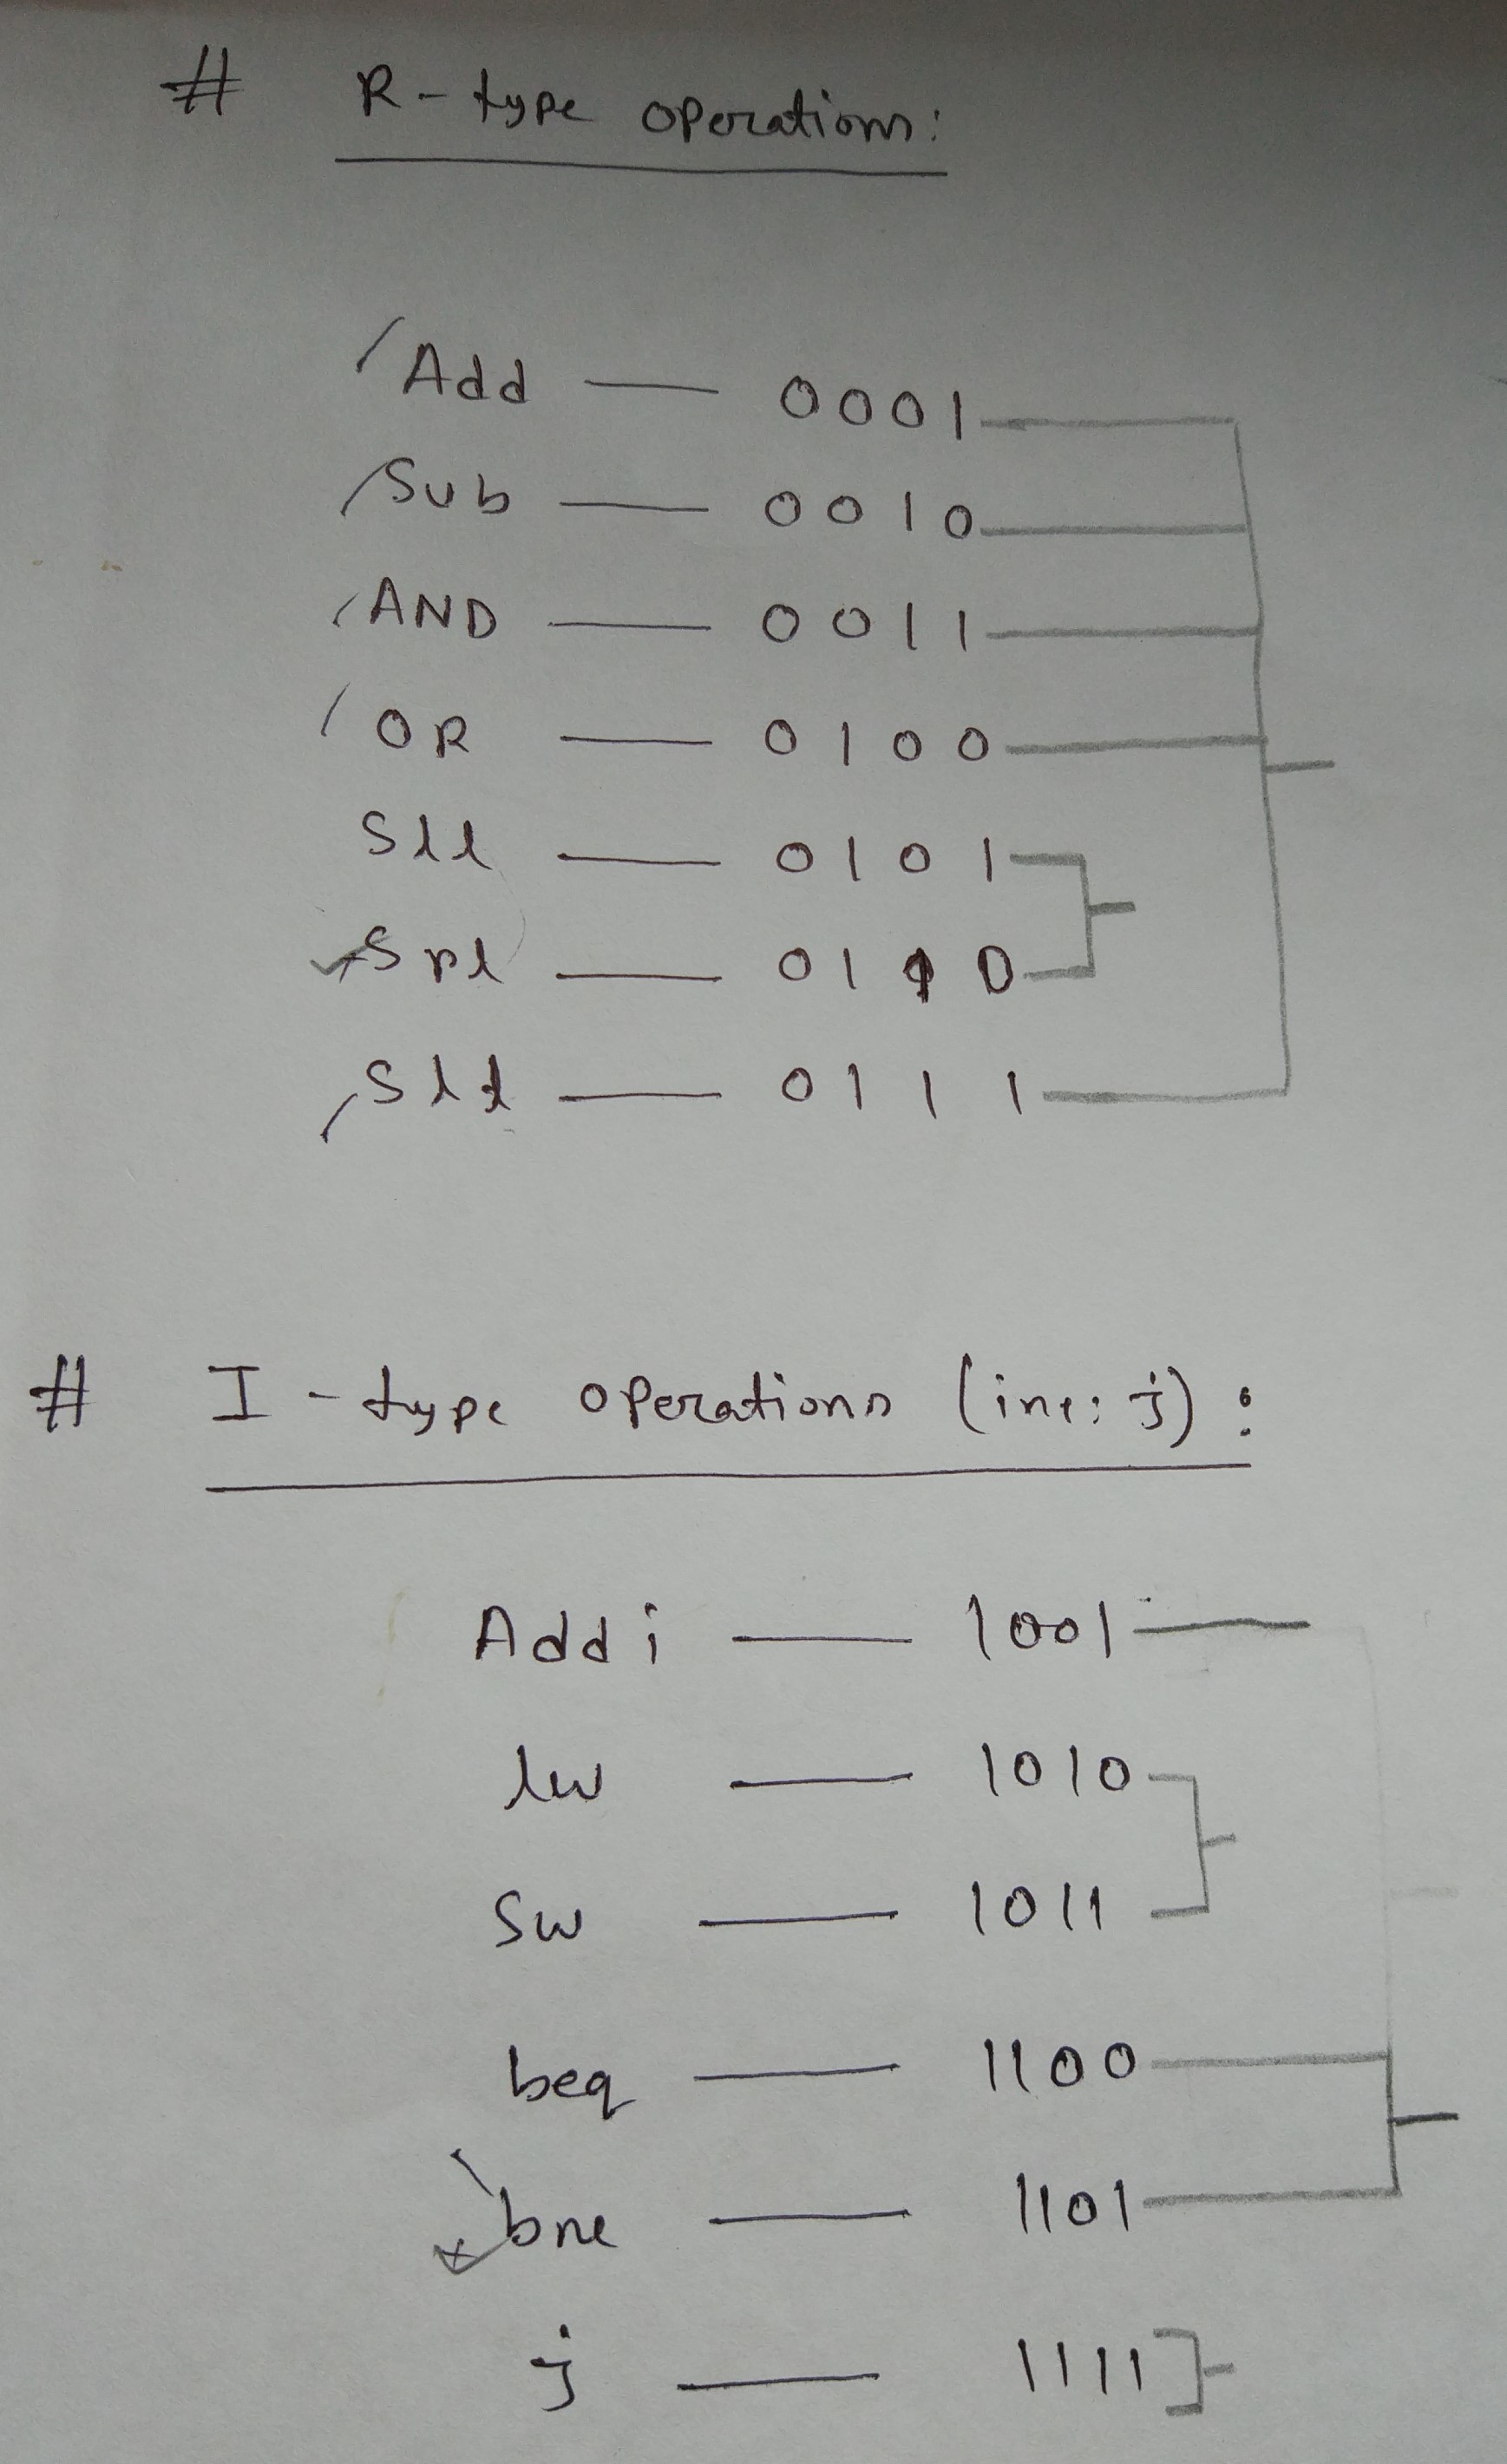 # R-type operations:
Add — 0001
Sub — 0010
AND — 0011
OR — 0100
Sll — 0101
Srl — 0110
Slt — 0111
# I-type operations (inc: j):
Addi — 1001
lw — 1010
sw — 1011
beq — 1100
bne — 1101
j — 1111